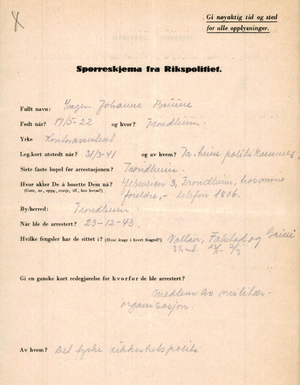 Gi nøyaktig tid og sted
for alle opplysninger.
Spørreskjema fra Rikspolitiet.
Fullt navn: Inger Johanne
Født når? 17/5-22 og hvor? Trondheim.
Yrke Kontorassistent
Leg.kort utstedt når? 31/3-41 og av hvem? Tr.heim politikammer,
Siste faste bopel før arrestasjonen? Trondheim.
Hvor akter De å bosette Dem nå? 3, Trondheim, hos mine
(Gate, nr., oppg., etasje, tlf., hos hvem?) foreldre, - telefon
By/herred: Trondheim
Når ble de arrestert? 29-12-43.
Hvilke fengsler har de sittet i? (Hvor lenge i hvert fengsel?) Vollan, Falstad og Grini
Gi en ganske kort redegjørelse for hvorfor de ble arrestert?
Medlem av militær-
organisasjon.
Av hvem? Det tyske sikkerhetspoliti